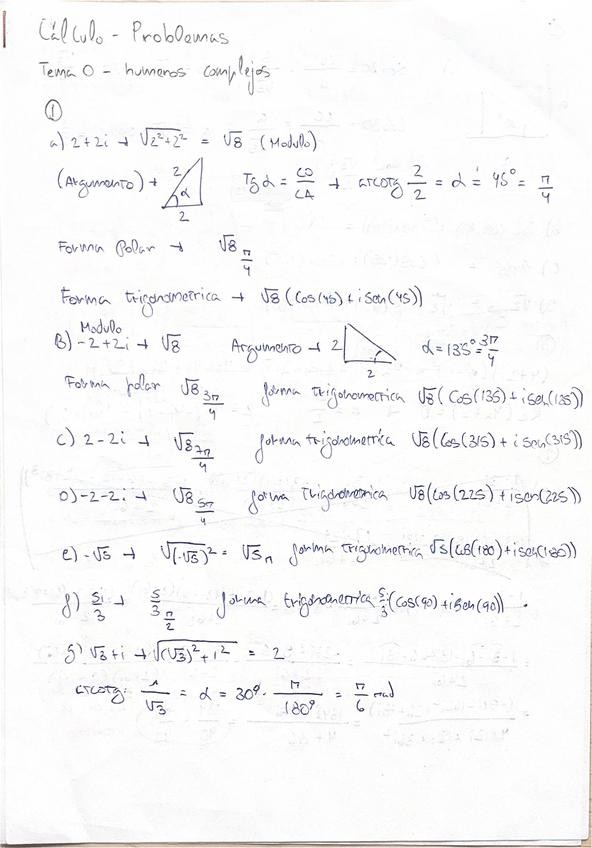 Cálculo - Problemas
Tema 0 - números complejos
①
a) 2+2i → √(2²+2²) = √8 (Modulo)
(Argumento) → 2 α 2 Tg α = CO/CA → arcotg 2/2 = α = 45° = π/4
Forma Polar → √8 π/4
Forma trigonometrica → √8 (Cos(45) + i Sen(45))
Modulo
B) -2+2i → √8 Argumento → 2 2 α = 135° = 3π/4
Forma polar √8 3π/4 forma trigonometrica √8 (Cos(135) + i Sen(135))
C) 2-2i → √8 7π/4 forma trigonometrica √8 (Cos(315) + i sen(315))
D) -2-2i → √8 5π/4 forma trigonometrica √8 (Cos(225) + i sen(225))
e) -√5 → √(-√5)² = √5 π forma trigonometrica √5 (Cos(180) + i sen(180))
f) 5i/3 → 5/3 π/2 forma trigonometrica 5/3 (Cos(90) + i Sen(90)) .
g) √3+i → √((√3)²+1²) = 2
arcotg 1/√3 = α = 30° · π/180° = π/6 rad